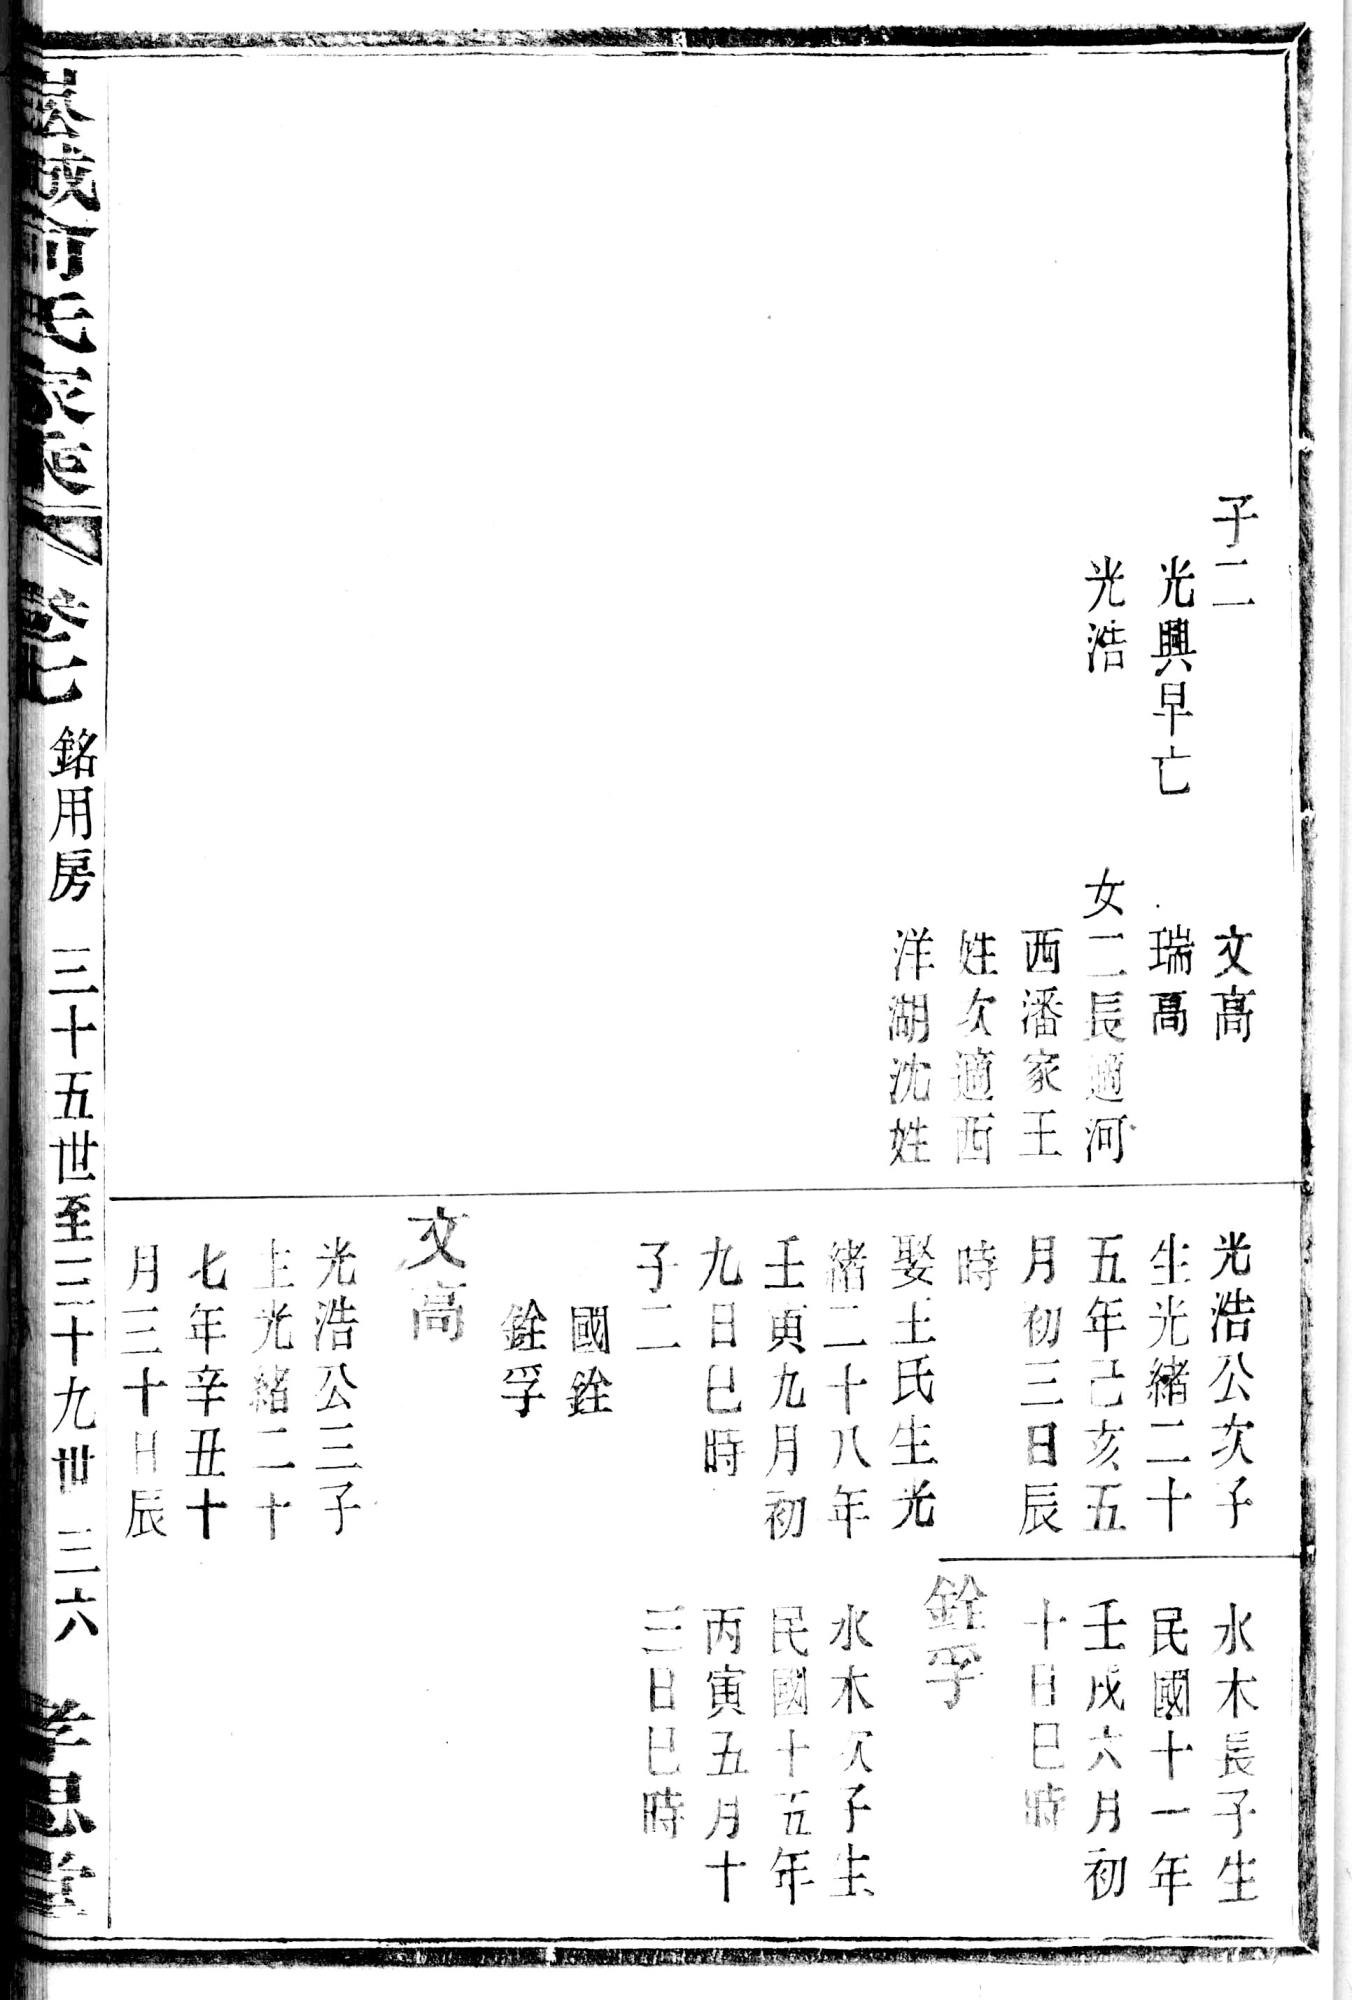 子二
光興早亡
光浩
文高
瑞高
女二長適河
西潘家王
姓次適西
洋湖沈姓
光浩公次子
生光緒二十
五年己亥五
月初三日辰
時
娶王氏生光
緒二十八年
壬寅九月初
九日巳時
子二
國銓
銓孚
文高
光浩公三子
生光緒二十
七年辛丑十
月三十日辰
水木長子生
民國十一年
壬戌六月初
十日巳時
銓孚
水木次子生
民國十五年
丙寅五月十
三日巳時
俞氏家乘 卷七 銘用房 三十五世至三十九世 三六 孝思堂